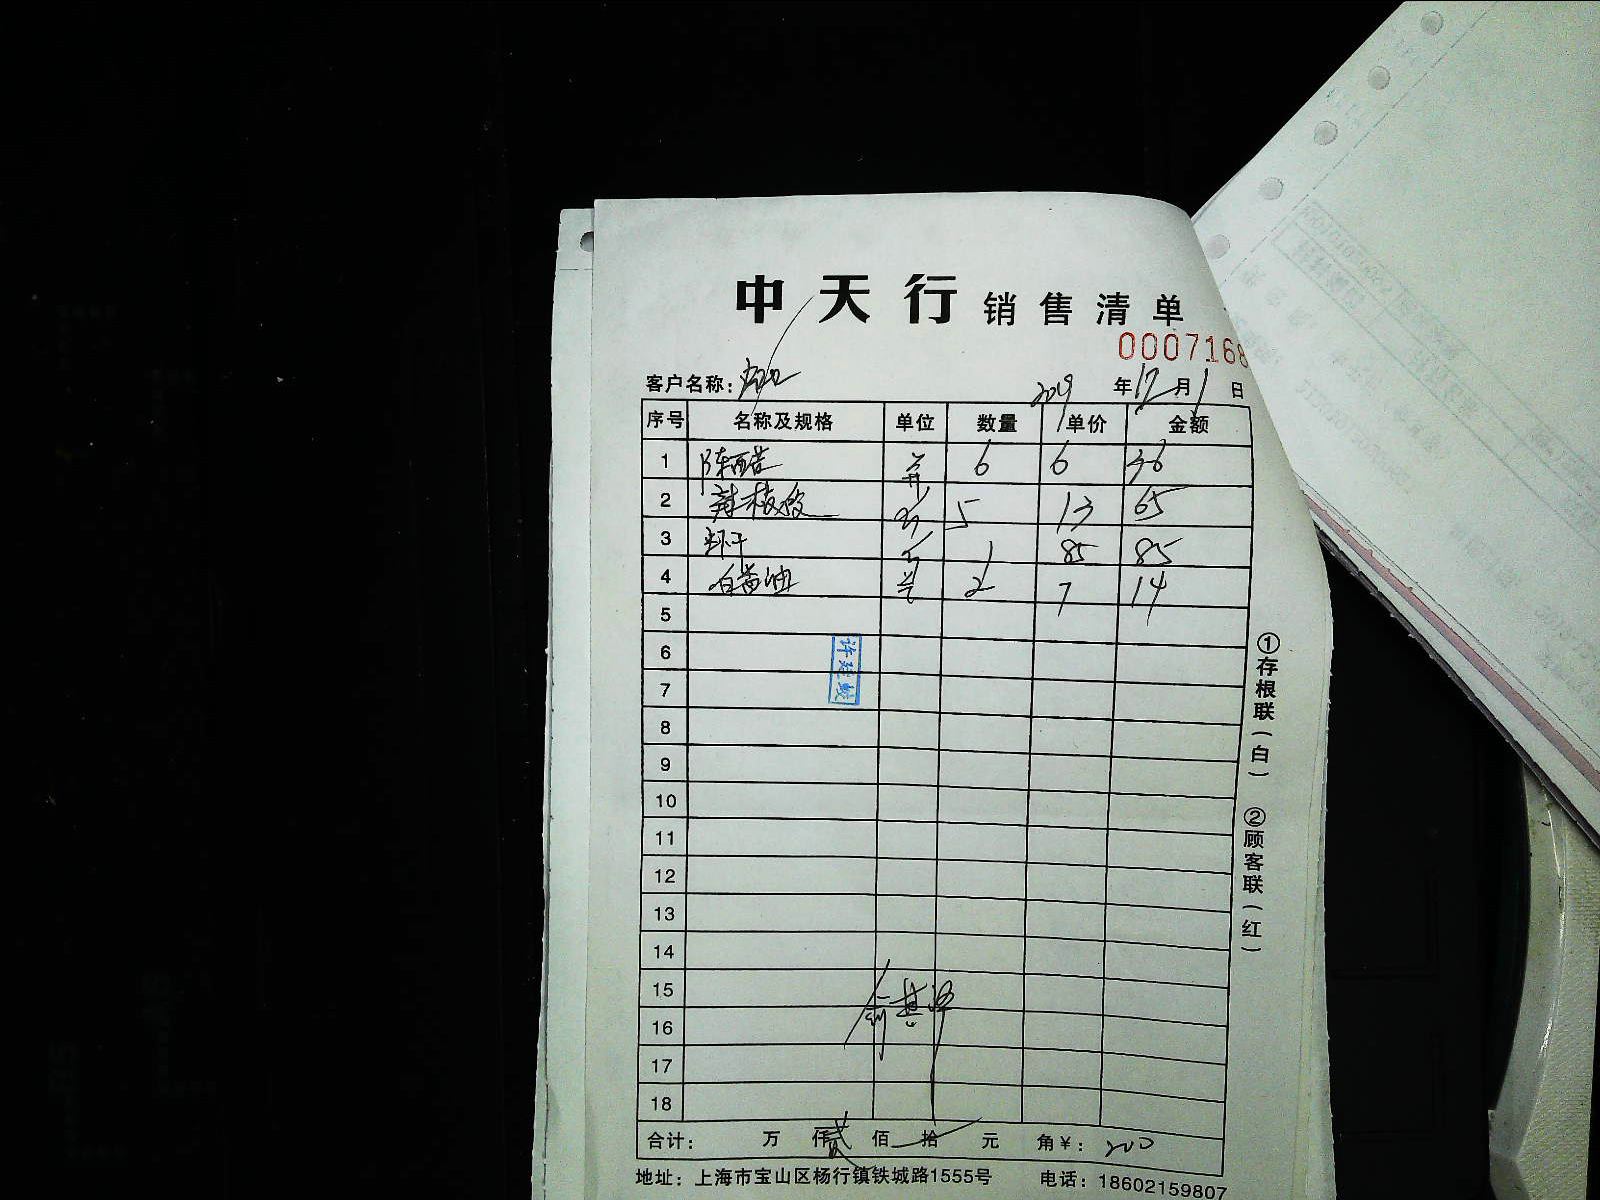 中天行 销售清单
0007168
客户名称：
2019年12月1日
序号 名称及规格 单位 数量 单价 金额
1 陈醋 6 6 36
2 5 13 65
3 虾干 1 85 85
4 白酱油 2 7 14
5
6
7
8
9
10
11
12
13
14
15
16
17
18
合计： 万 仟 贰 佰 拾 元 角 ¥： 200
地址：上海市宝山区杨行镇铁城路1555号 电话：18602159807
①存根联（白） ②顾客联（红）